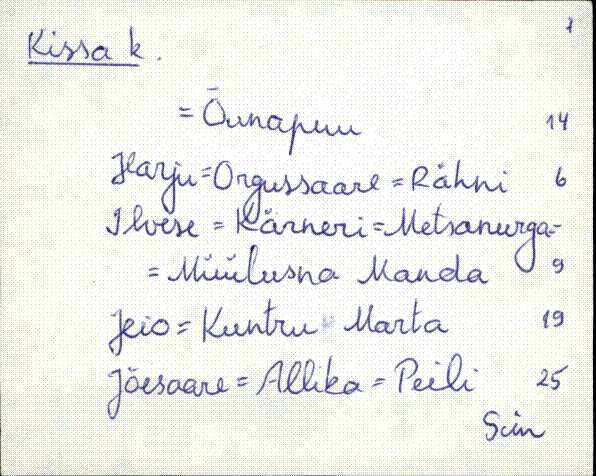 1
Kissa k.
= Õunapuu 14
Harju = Orgussaare = Rähni 6
Ilvese = Kärneri = Metsanurga =
= Müülusna Manda 9
Jeio = Kuntru Marta 19
Jõesaare = Allika = Peili 25